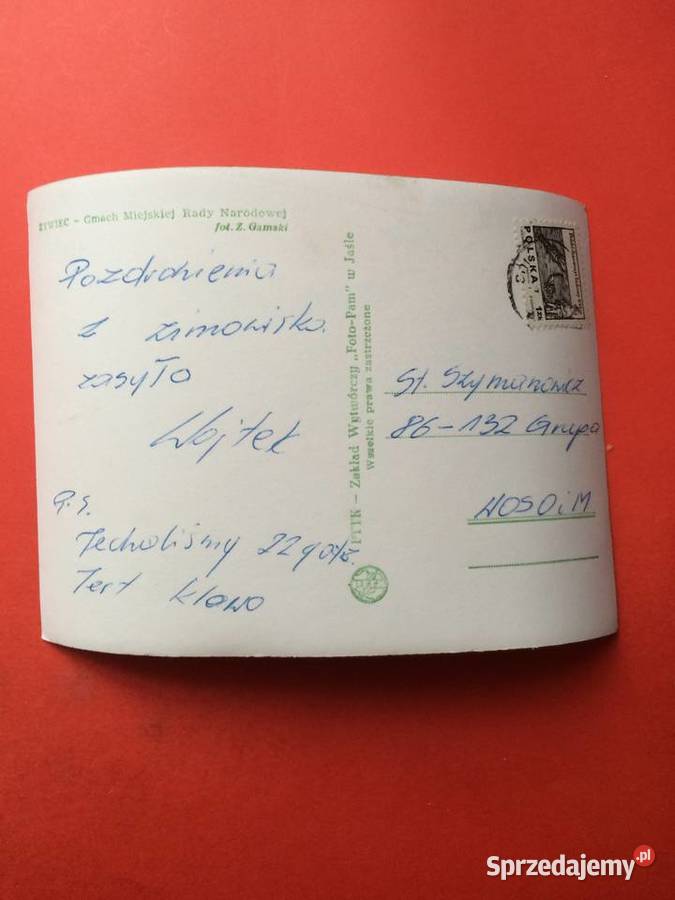 ŻYWIEC – Gmach Miejskiej Rady Narodowej
fot. Z. Gamski
Pozdrowienia
z zimowiska
zasyła
Wojtek
P.S.
Jechaliśmy 22 godz.
Jest klawo
PTTK – Zakład Wytwórczy „Foto-Pam” w Jaśle
Wszelkie prawa zastrzeżone
POLSKA
St. Szymanowicz
86-132 Grupa
WOSOiM
Sprzedajemy.pl